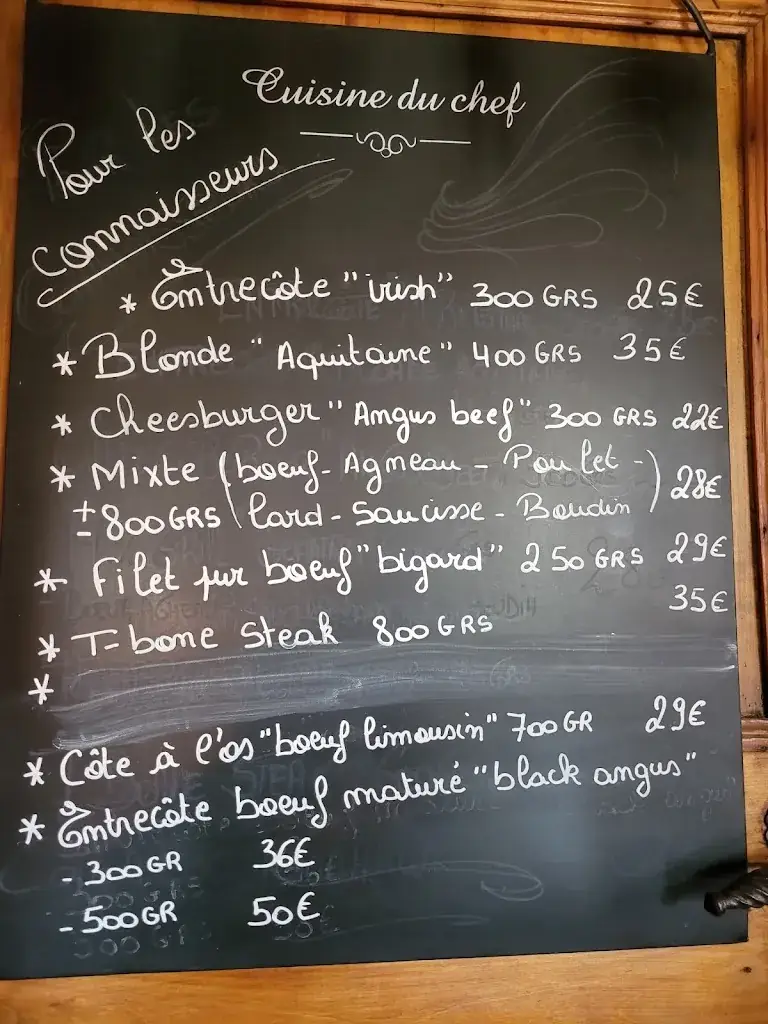 Cuisine du chef
Pour les
connaisseurs
* Entrecôte "irish" 300 GRS 25€
* Blonde "Aquitaine" 400 GRS 35€
* Cheesburger "Angus beef" 300 GRS 22€
* Mixte (boeuf - Agmeau - Poulet -) 28€
± 800 GRS (lard - Saucisse - Boudin)
* Filet pur boeuf "bigard" 250 GRS 29€
35€
* T-bone Steak 800 GRS
*
* Côte à l'os "boeuf limousin" 700 GR 29€
* Entrecôte boeuf maturé "black angus"
- 300 GR 36€
- 500 GR 50€